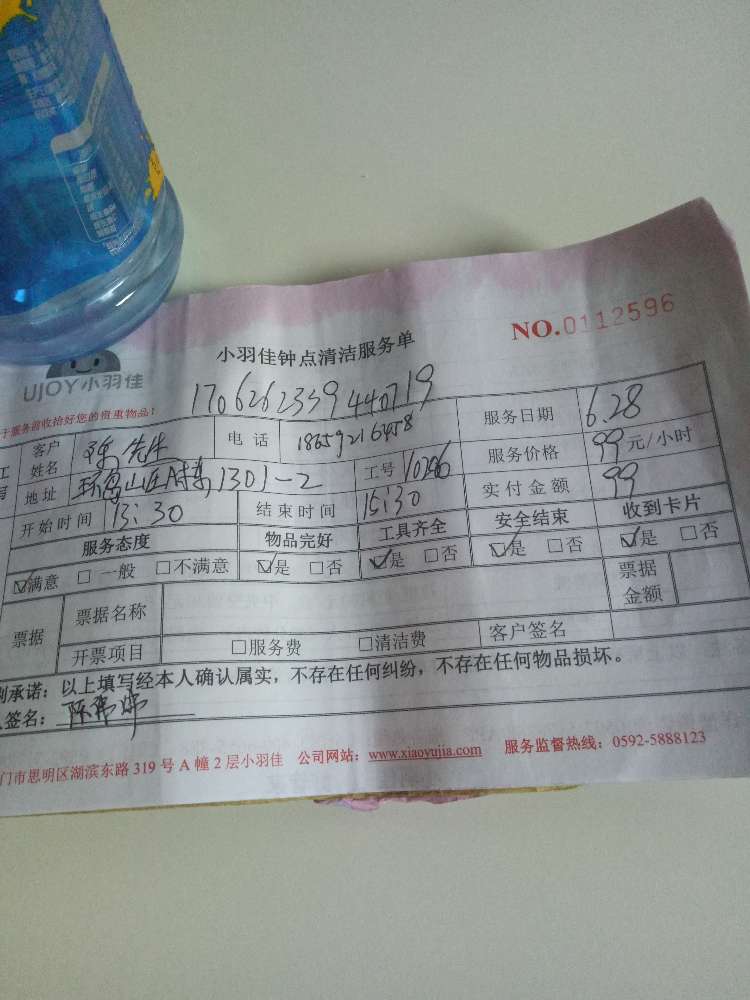 NO.0112596
小羽佳钟点清洁服务单
UJOY小羽佳
于服务前收拾好您的贵重物品!
170626233944071 9
客户姓名 先生 电话 18659216458 服务日期 6.28
地址 1301-2 工号 10296 服务价格 99元/小时
开始时间 13:30 结束时间 15:30 实付金额 99
服务态度 物品完好 工具齐全 安全结束 收到卡片
☑满意 □一般 □不满意 ☑是 □否 ☑是 □否 ☑是 □否 ☑是 □否
票据 票据名称 票据金额
开票项目 □服务费 □清洁费 客户签名
承诺:以上填写经本人确认属实,不存在任何纠纷,不存在任何物品损坏。
签名:
门市思明区湖滨东路 319 号 A 幢 2 层小羽佳 公司网站:www.xiaoyujia.com 服务监督热线:0592-5888123